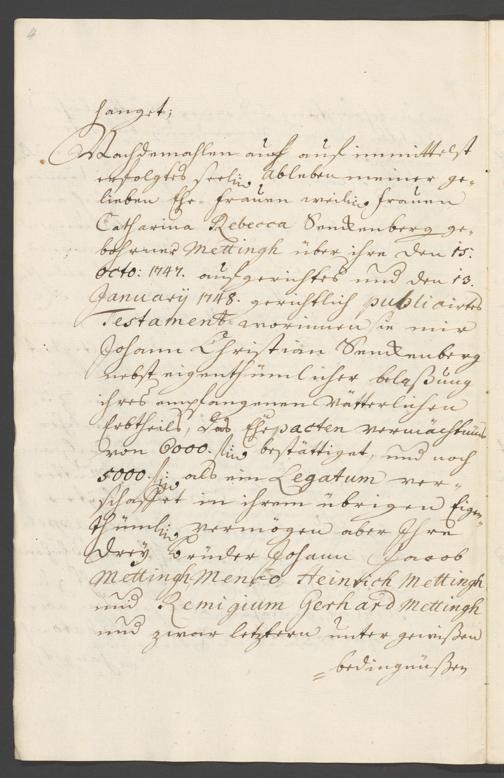 4
hanget;
Nachdemahlen auch auf immittelst
erfolgtes seelig Ableben meiner ge-
lieben Ehe-Frauen weilig Frauen
Catharina Rebecca Senckenberg ge-
bohrner Mettingh über ihre den 15.
Octo: 1747. aufgerichtes und den 13.
January 1748. gerichtlich publicirtes
Testament worinnen sie mir
Johann Christian Senckenberg
nebst eigenthümlicher belaßung
ihres empfangenen Vätterlichen
Erbtheils, das Ehepacten vermächtnüs
von 6000. bestättiget, und noch
5000. als ein Legatum ver-
schafft in ihrem übrigen Eigen-
thümlig vermögen aber Ihre
Drey Brüder Johann Jacob
Mettingh Menco Heinrich Mettingh
und Remigium Gerhard Mettingh
und zwar letztern unter gewißen
= bedingnüßen